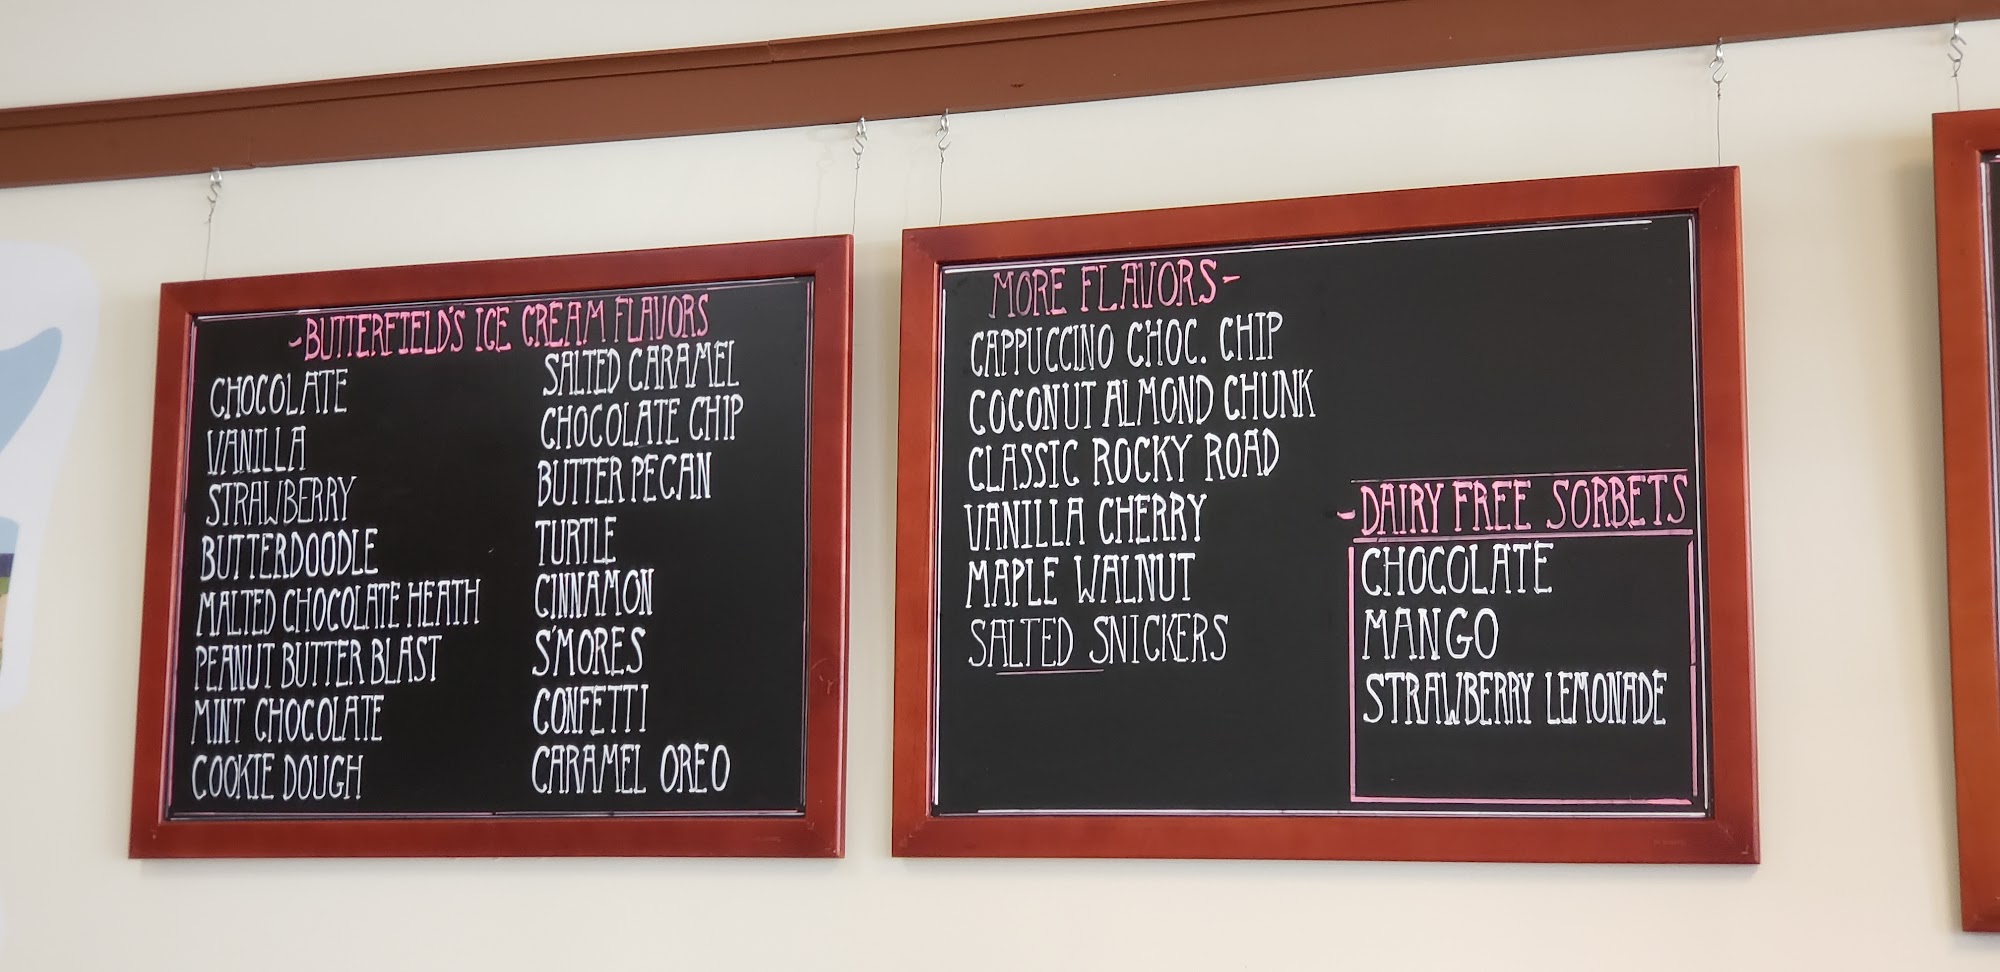 -BUTTERFIELD'S ICE CREAM FLAVORS
CHOCOLATE
VANILLA
STRAWBERRY
BUTTERDOODLE
MALTED CHOCOLATE HEATH
PEANUT BUTTER BLAST
MINT CHOCOLATE
COOKIE DOUGH
SALTED CARAMEL
CHOCOLATE CHIP
BUTTER PECAN
TURTLE
CINNAMON
S'MORES
CONFETTI
CARAMEL OREO
MORE FLAVORS-
CAPPUCCINO CHOC. CHIP
COCONUT ALMOND CHUNK
CLASSIC ROCKY ROAD
VANILLA CHERRY
MAPLE WALNUT
SALTED SNICKERS
-DAIRY FREE SORBETS
CHOCOLATE
MANGO
STRAWBERRY LEMONADE